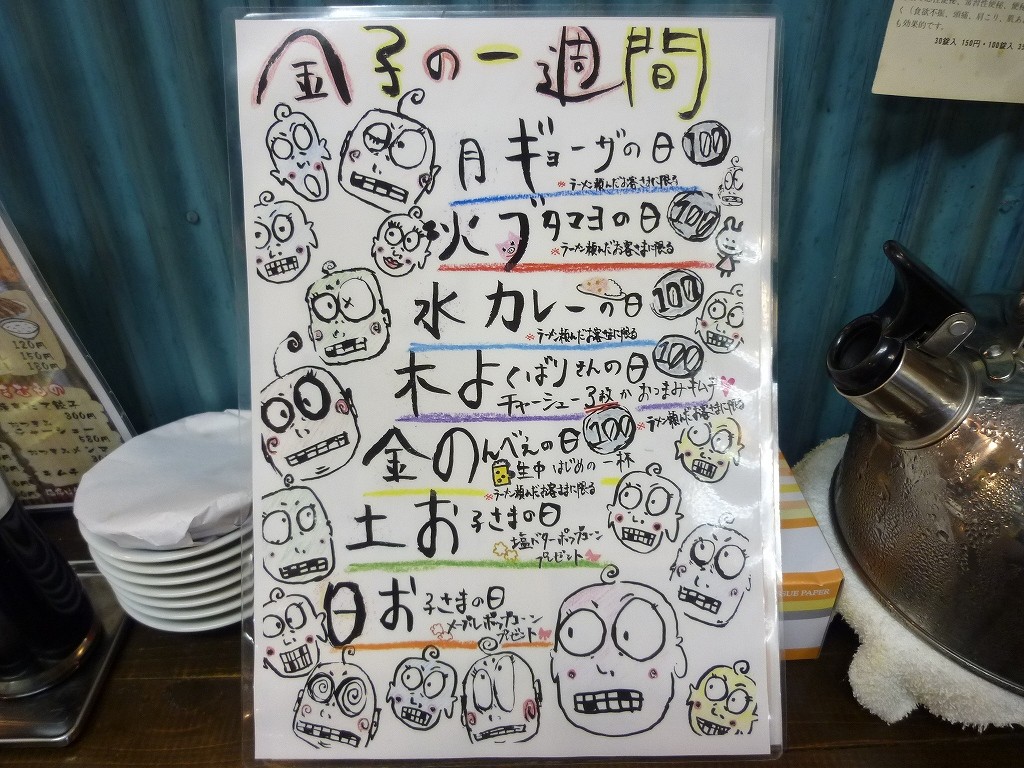 金子の一週間
月 ギョーザの日 100
※ラーメン頼んだお客さまに限る
火 ブタマヨの日 100
※ラーメン頼んだお客さまに限る
水 カレーの日 100
※ラーメン頼んだお客さまに限る
木 よくばりさんの日 100
チャーシュー3枚かおつまみキムチ
※ラーメン頼んだお客さまに限る
金 のんべえの日 100
生中はじめの一杯
※ラーメン頼んだお客さまに限る
土 お子さまの日
塩バターポップコーン
プレゼント
日 お子さまの日
メープルポップコーン
プレゼント
く（食欲不振、頭痛、肩こり、
も効果的です。
30錠入 150円・100錠入
120円
150円
180円
360円
580円